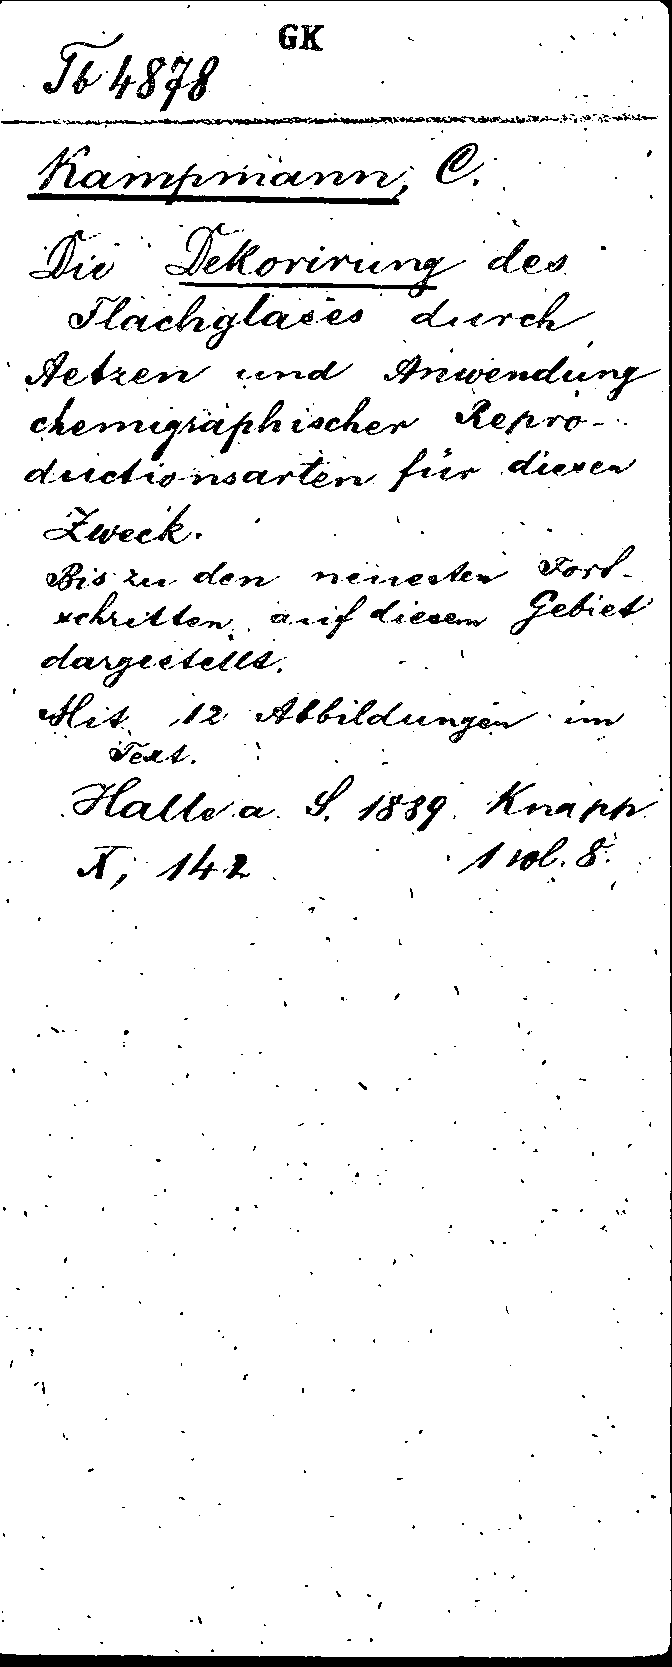 GK
Tb 4878
Kampmann, C.
Die Dekorirung des
Flachglases durch
Aetzen und Anwendung
chemigraphischer Repro-
ductionsarten für diesen
Zweck.
Bis zu den neuesten Fort-
schritten auf diesem Gebiet
dargestellt.
Mit 12 Abbildungen im
Text.
Halle a. S. 1889. Knapp
X, 142 1 vol. 8.